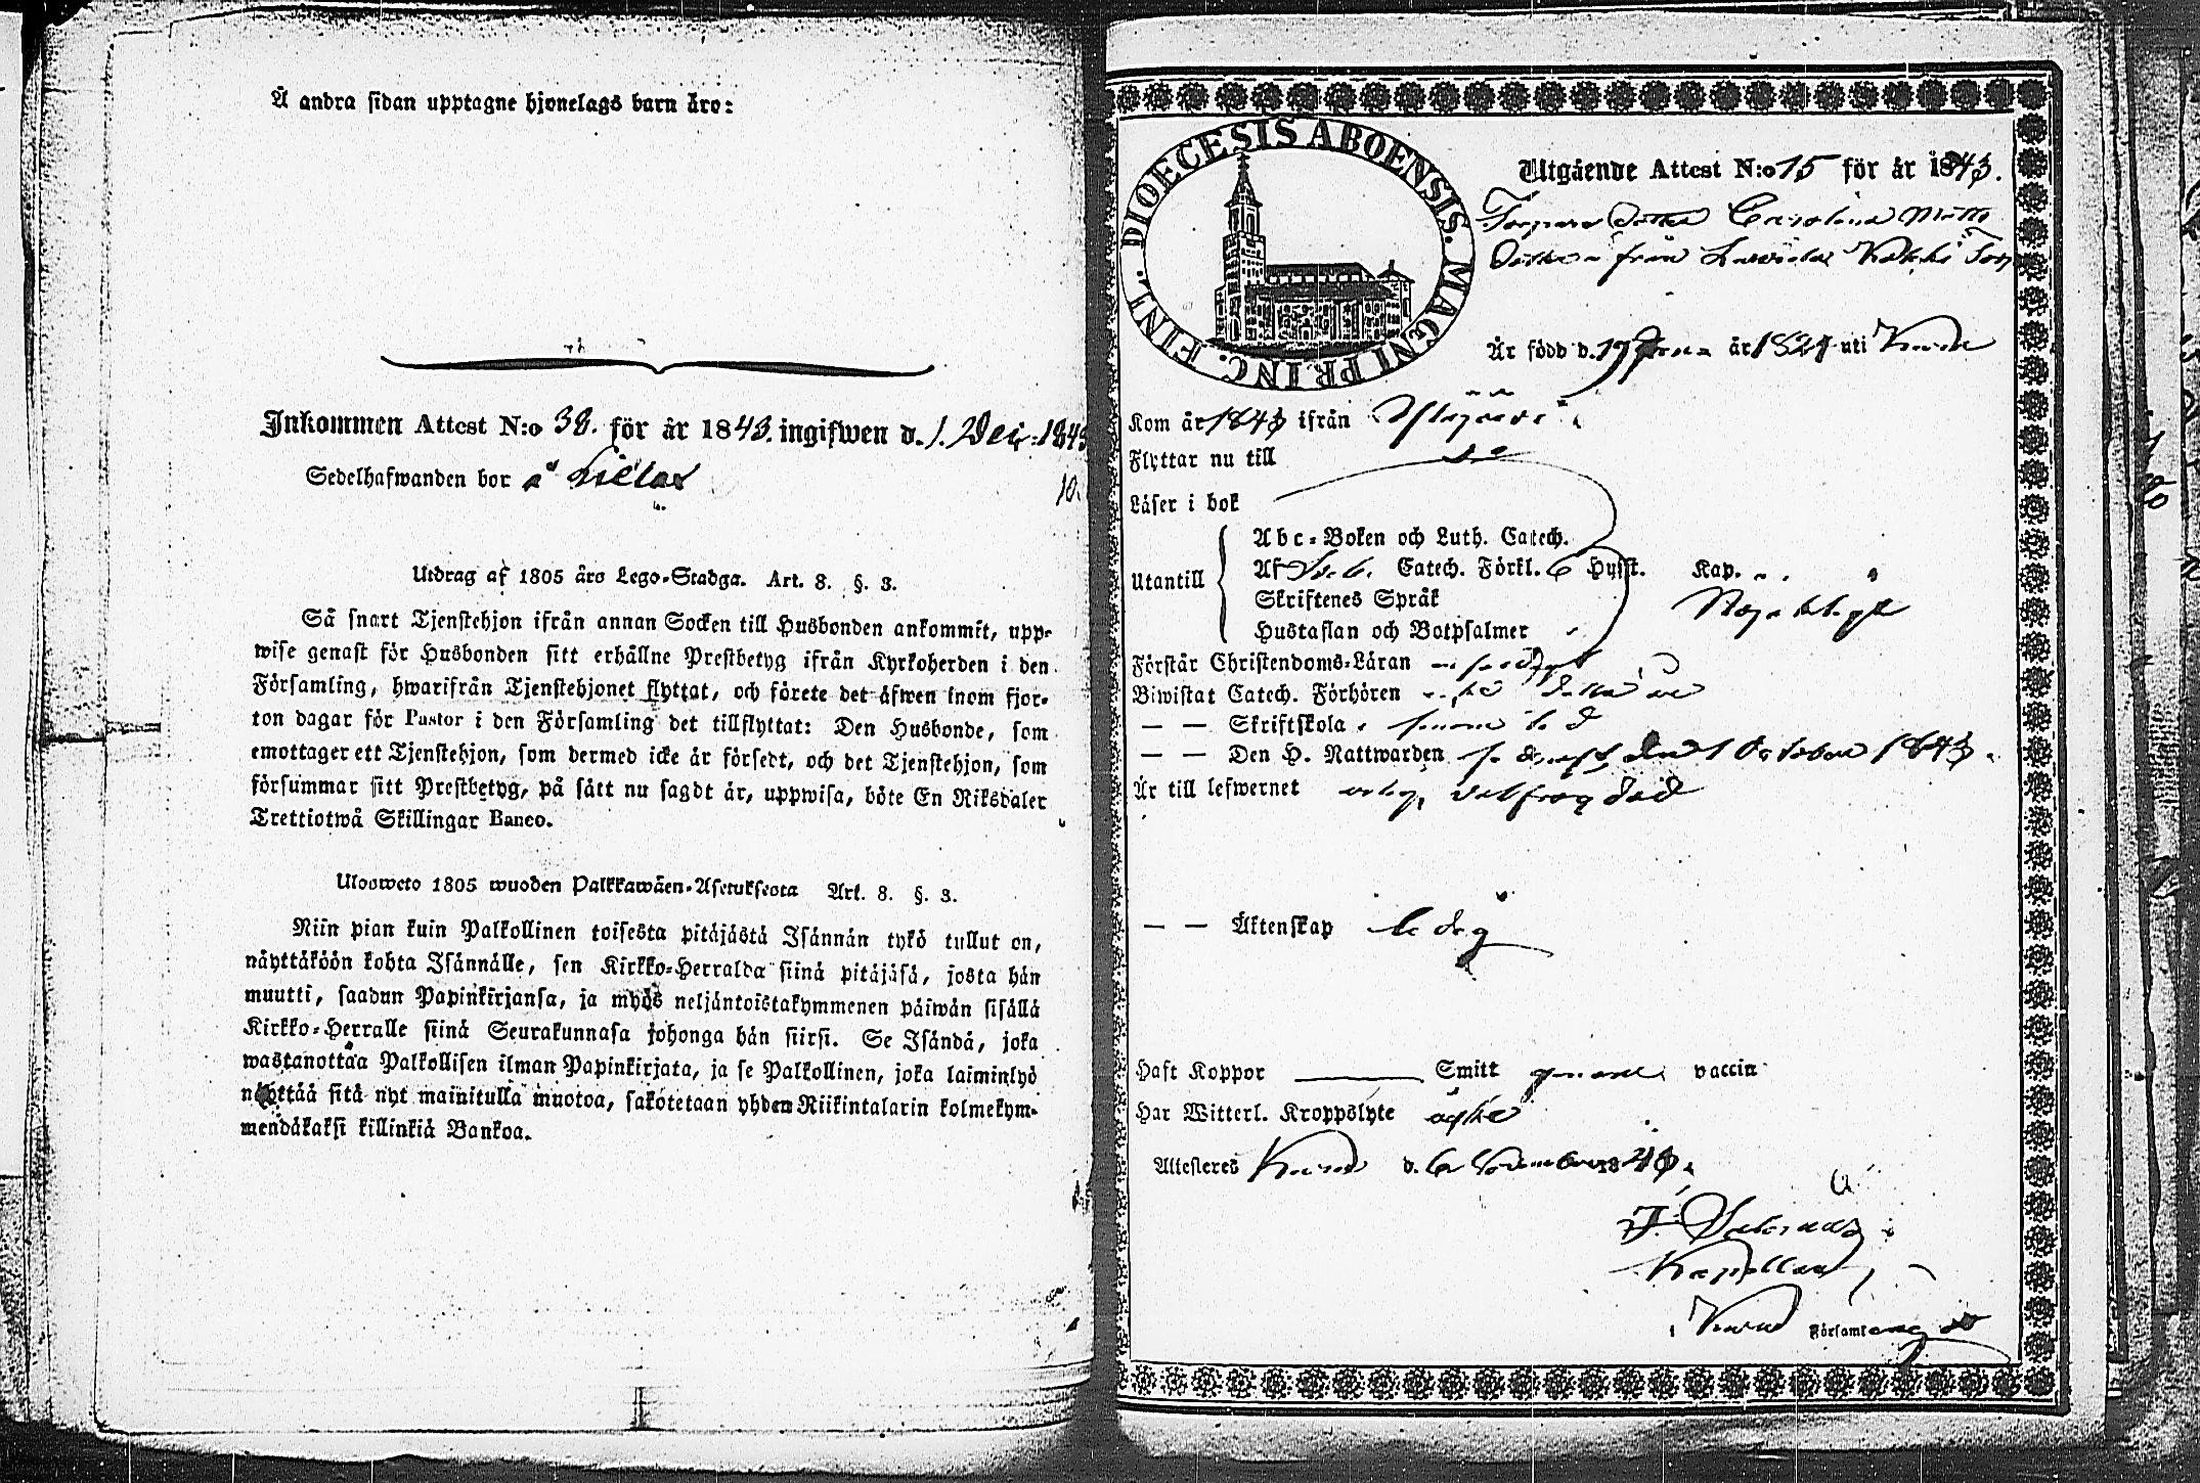 Å andra sidan upptagne hjonelags barn äro:
Inkommen Attest N:o 38. för år 1843. ingifwen d. 1. Dec: 1843
Sedelhafwanden bor å
10.
Utdrag af 1805 års Lego-Stadga. Art. 8. §. 3.
Så snart Tjenstehjon ifrån annan Socken till Husbonden ankommit, upp-
wise genast för Husbonden sitt erhållne Prestbetyg ifrån Kyrkoherden i den
Församling, hwarifrån Tjenstehjonet flyttat, och förete det äfwen inom fjor-
ton dagar för Pastor i den Församling det tillflyttat: Den Husbonde, som
emottager ett Tjenstehjon, som dermed icke är försedt, och det Tjenstehjon, som
försummar sitt Prestbetyg, på sätt nu sagdt är, uppwisa, böte En Riksdaler
Trettiotwå Skillingar Banco.
Ulosweto 1805 wuoden Palkkawäen-Asetuksesta Art. 8. §. 3.
Niin pian kuin Palkollinen toisesta pitäjästä Isännän tykö tullut on,
näyttäköön kohta Isännälle, sen Kirkko-Herralda siinä pitäjäsä, josta hän
muutti, saadun Papinkirjansa, ja myös neljäntoistakymmenen päiwän sisällä
Kirkko-Herralle siinä Seurakunnasa johonga hän siirsi. Se Isändä, joka
wastanottaa Palkollisen ilman Papinkirjata, ja se Palkollinen, joka laiminlyö
näyttää sitä nyt mainitulla muotoa, sakotetaan yhden Riikintalarin kolmekym-
mendäkaksi killinkiä Bankoa.
DIOECESIS ABOENSIS. MAGNI PRINC. FINL.
Utgående Attest N:o 15 för år 1843.
Torpare Dotter Carolina Matts
Dotter från Torp
Är född d. 19 år 1821 uti
Kom år 1843 ifrån
Flyttar nu till
Läser i bok
Utantill
Abc-Boken och Luth. Catech.
Af Sveb. Catech. Förkl. 6 Hufst. Kap.
Skriftenes Språk
Hustaflan och Botpsalmer
Förstår Christendoms-Läran
Biwistat Catech. Förhören
— — Skriftskola
— — Den H. Nattwarden den 1 October 1843.
Är till lefwernet wälfrägdad
— — Äktenskap ledig
Haft Koppor — Smitt genom vaccin
Har Witterl. Kroppslyte
Attesteras d. 6 November 1843.
Kapellan
Församling